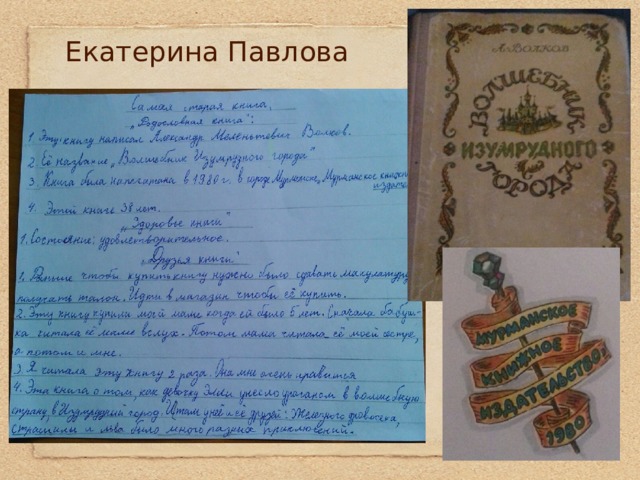 Екатерина Павлова
Самая старая книга.
„Родословная книги":
1. Эту книгу написал Александр Мелентьевич Волков.
2. Её название „Волшебник Изумрудного города"
3. Книга была напечатана в 1980 г. в городе Мурманске, Мурманское книжное
издате
4. Этой книге 38 лет.
„Здоровье книги"
1. Состояние: удовлетворительное.
„Друзья книги"
1. Раньше чтобы купить книгу нужно было сдавать макулатуру
получать талон. Идти в магазин чтобы её купить.
2. Эту книгу купили моей маме, когда ей было 5 лет. Сначала бабуш-
ка читала её маме вслух. Потом мама читала её моей сестре,
а потом и мне.
3. Я читала эту книгу 2 раза. Она мне очень нравится
4. Эта книга о том, как девочку Элли унесло ураганом в волшебную
страну в Изумрудный город. И там у неё и её друзей: Железного дровосека,
Страшилы и льва было много разных приключений.
А. ВОЛКОВ
ВОЛШЕБНИК
ИЗУМРУДНОГО
ГОРОДА
МУРМАНСКОЕ
КНИЖНОЕ
ИЗДАТЕЛЬСТВО
1980